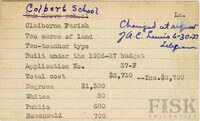 Colbert School
Oak Grove School
La.
Claiborne Parish
Changed at request
J.A.C. Lewis 6-30-37
Telegram
Two acres of land
Two-teacher type
Built under the 1926-27 budget
Application No. 37-F
Total cost $2,730 --Ins.$2,700
Negroes $1,300
Whites 50
Public 680
Rosenwald 700
FISK
UNIVERSITY